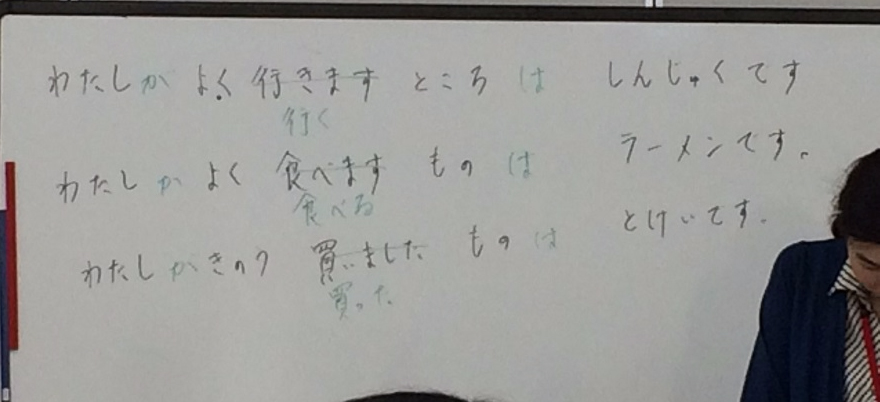 わたしが よく 行きます ところ は しんじゅくです
行く
わたしが よく 食べます もの は ラーメンです。
食べる
わたしが きのう 買いました もの は とけいです。
買った